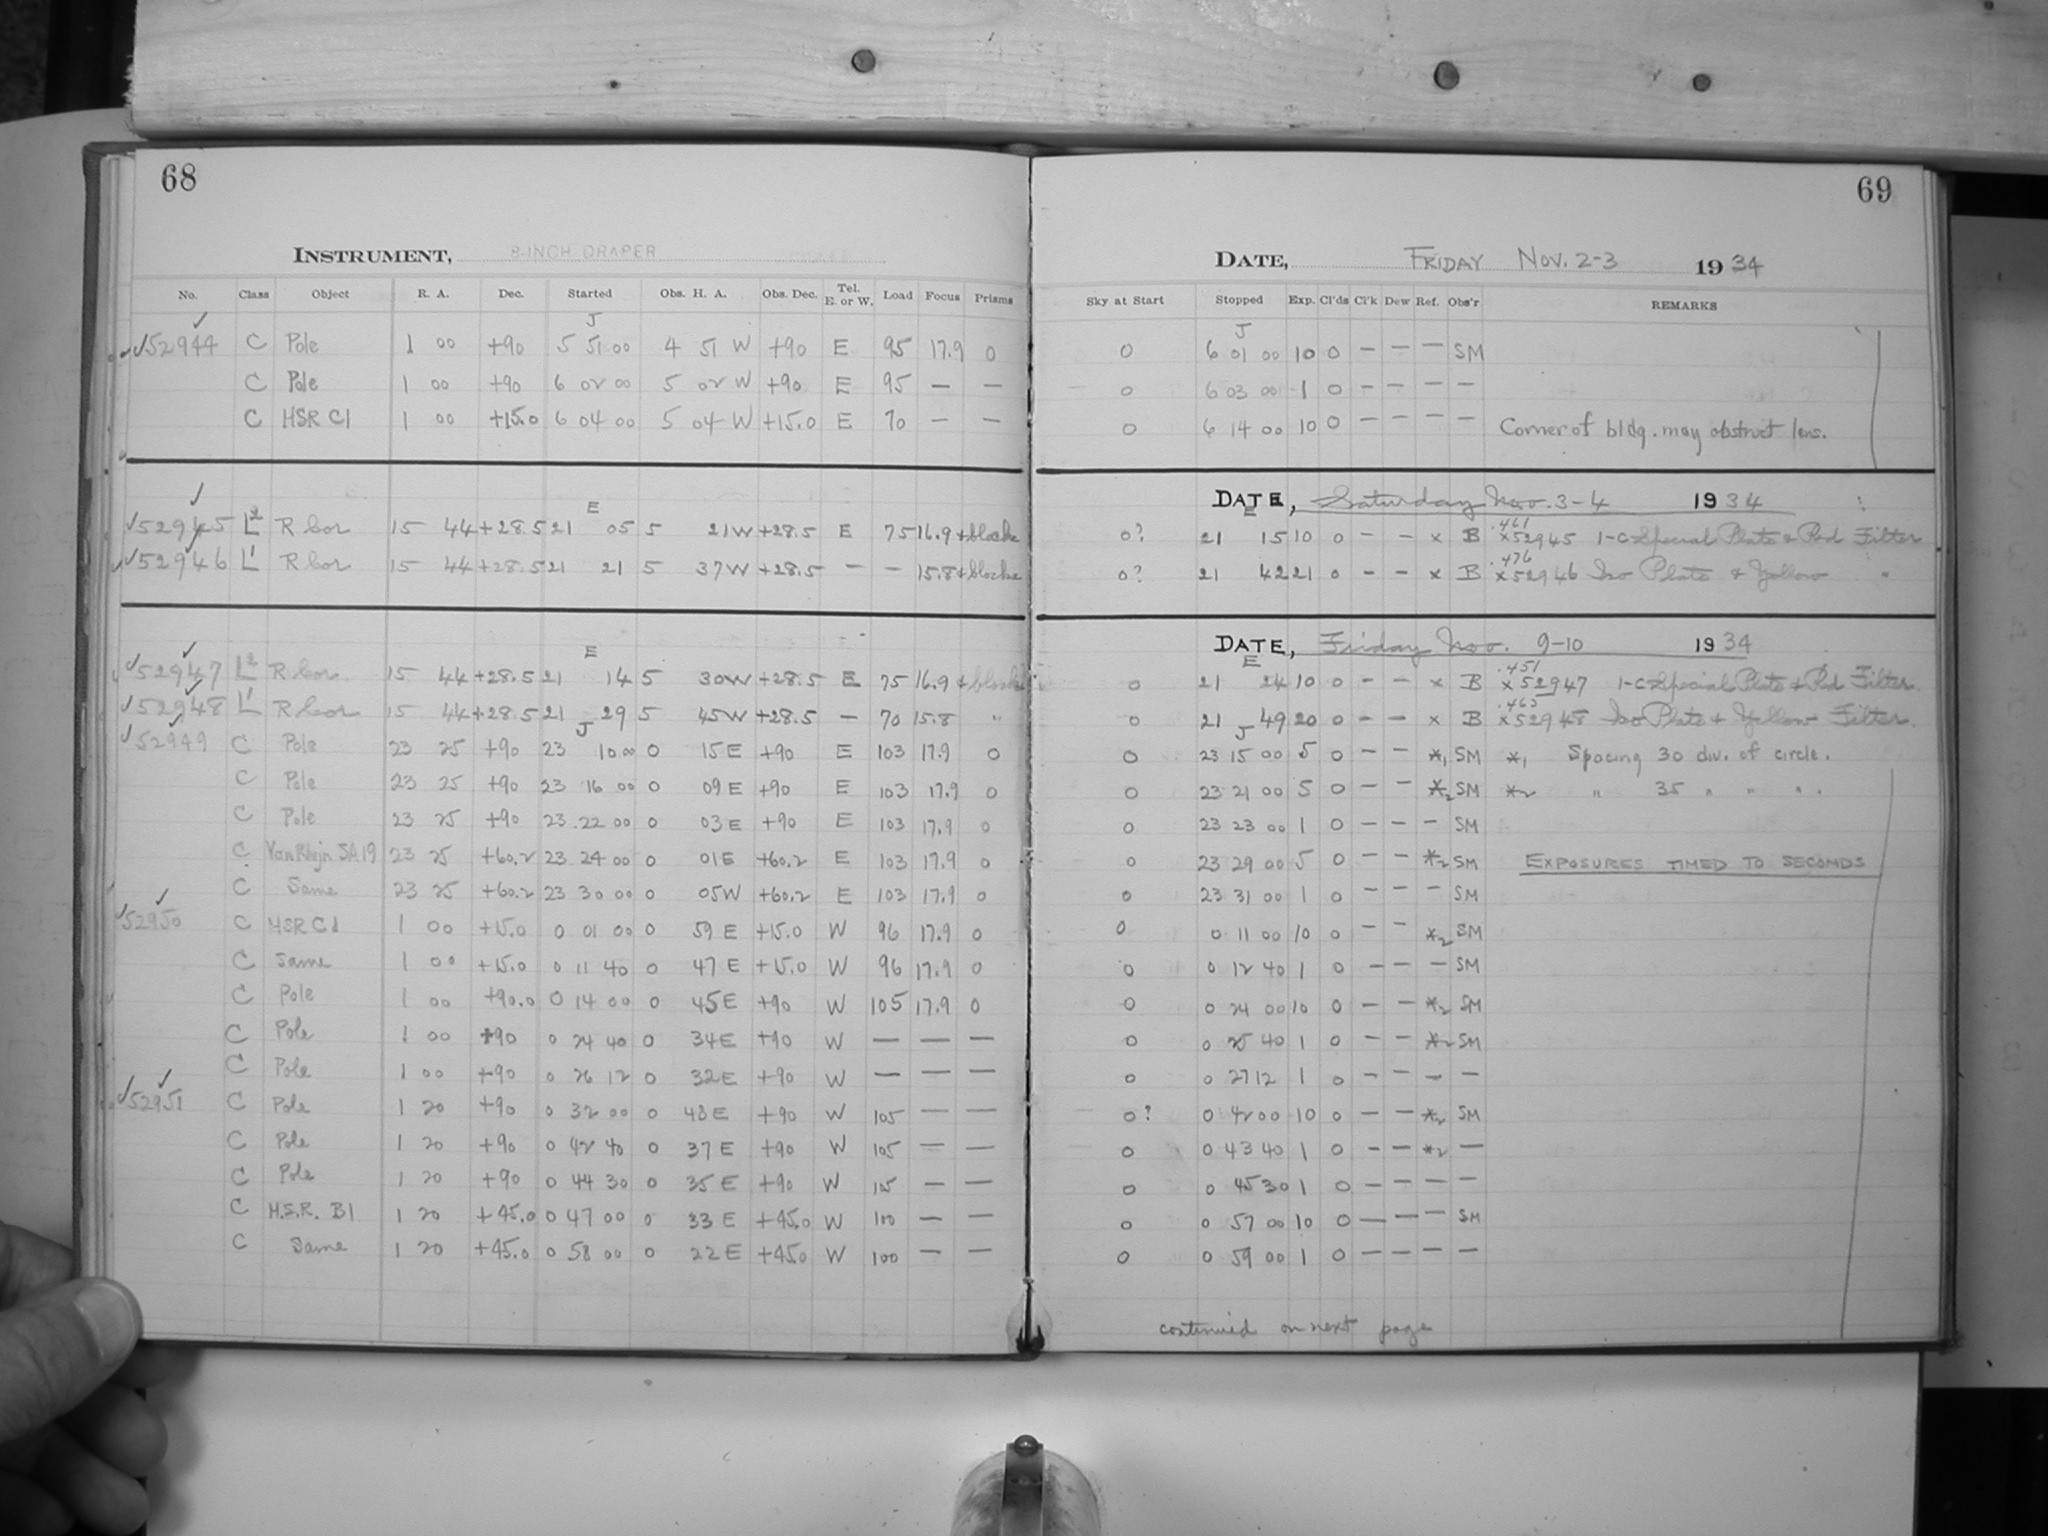 68
INSTRUMENT, 8-INCH DRAPER
No. Class Object R. A. Dec. Started Obs. H. A. Obs. Dec. Tel. E. or W. Load Focus Prisms
J
52944 C Pole 1 00 +90 5 51 00 4 51 W +90 E 95 17.9 0
C Pole 1 00 +90 6 02 00 5 02 W +90 E 95 — —
C HSR C1 1 00 +15.0 6 04 00 5 04 W +15.0 E 70 — —
E
52945 L2 R Cor 15 44 +28.5 21 05 5 21 W +28.5 E 75 16.9 + blocks
52946 L1 R Cor 15 44 +28.5 21 21 5 37 W +28.5 — — 15.8 + blocks
E
52947 L2 R Cor 15 44 +28.5 21 14 5 30 W +28.5 E 75 16.9 + blocks
52948 L1 R Cor 15 44 +28.5 21 29 5 45 W +28.5 — 70 15.8 "
J
52949 C Pole 23 25 +90 23 10 00 0 15 E +90 E 103 17.9 0
C Pole 23 25 +90 23 16 00 0 09 E +90 E 103 17.9 0
C Pole 23 25 +90 23 22 00 0 03 E +90 E 103 17.9 0
C Van Rhijn SA 19 23 25 +60.2 23 24 00 0 01 E +60.2 E 103 17.9 0
C Same 23 25 +60.2 23 30 00 0 05 W +60.2 E 103 17.9 0
52950 C HSR C1 1 00 +15.0 0 01 00 0 59 E +15.0 W 96 17.9 0
C Same 1 00 +15.0 0 11 40 0 47 E +15.0 W 96 17.9 0
C Pole 1 00 +90.0 0 14 00 0 45 E +90 W 105 17.9 0
C Pole 1 00 +90 0 24 40 0 34 E +90 W — — —
C Pole 1 00 +90 0 26 12 0 32 E +90 W — — —
52951 C Pole 1 20 +90 0 32 00 0 48 E +90 W 105 — —
C Pole 1 20 +90 0 42 40 0 37 E +90 W 105 — —
C Pole 1 20 +90 0 44 30 0 35 E +90 W 105 — —
C H.S.R. B1 1 20 +45.0 0 47 00 0 33 E +45.0 W 100 — —
C Same 1 20 +45.0 0 58 00 0 22 E +45.0 W 100 — —
69
DATE, FRIDAY NOV. 2-3 1934
Sky at Start Stopped Exp. Cl'ds Cl'k Dew Ref. Obs'r REMARKS
J
0 6 01 00 10 0 — — — SM
0 6 03 00 1 0 — — — —
0 6 14 00 10 0 — — — — Corner of bldg. may obstruct lens.
DATE, Saturday Nov. 3-4 1934
E
.461
0? 21 15 10 0 — — x B x52945 1-C Special Plate & Red Filter
.476
0? 21 42 21 0 — — x B x52946 Iso Plate & Yellow "
DATE, Friday Nov. 9-10 1934
E
.451
0 21 24 10 0 — — x B x52947 1-C Special Plate & Red Filter
.465
0 21 49 20 0 — — x B x52948 Iso Plate & Yellow Filter.
J
0 23 15 00 5 0 — — *1 SM *1 Spacing 30 div. of circle.
0 23 21 00 5 0 — — *2 SM *2 " 35 " " " .
0 23 23 00 1 0 — — — SM
0 23 29 00 5 0 — — *2 SM EXPOSURES TIMED TO SECONDS
0 23 31 00 1 0 — — — SM
0 0 11 00 10 0 — — *2 SM
0 0 12 40 1 0 — — — SM
0 0 24 00 10 0 — — *2 SM
0 0 25 40 1 0 — — *2 SM
0 0 27 12 1 0 — — — —
0? 0 42 00 10 0 — — *2 SM
0 0 43 40 1 0 — — *2 —
0 0 45 30 1 0 — — — —
0 0 57 00 10 0 — — — SM
0 0 59 00 1 0 — — — —
continued on next page